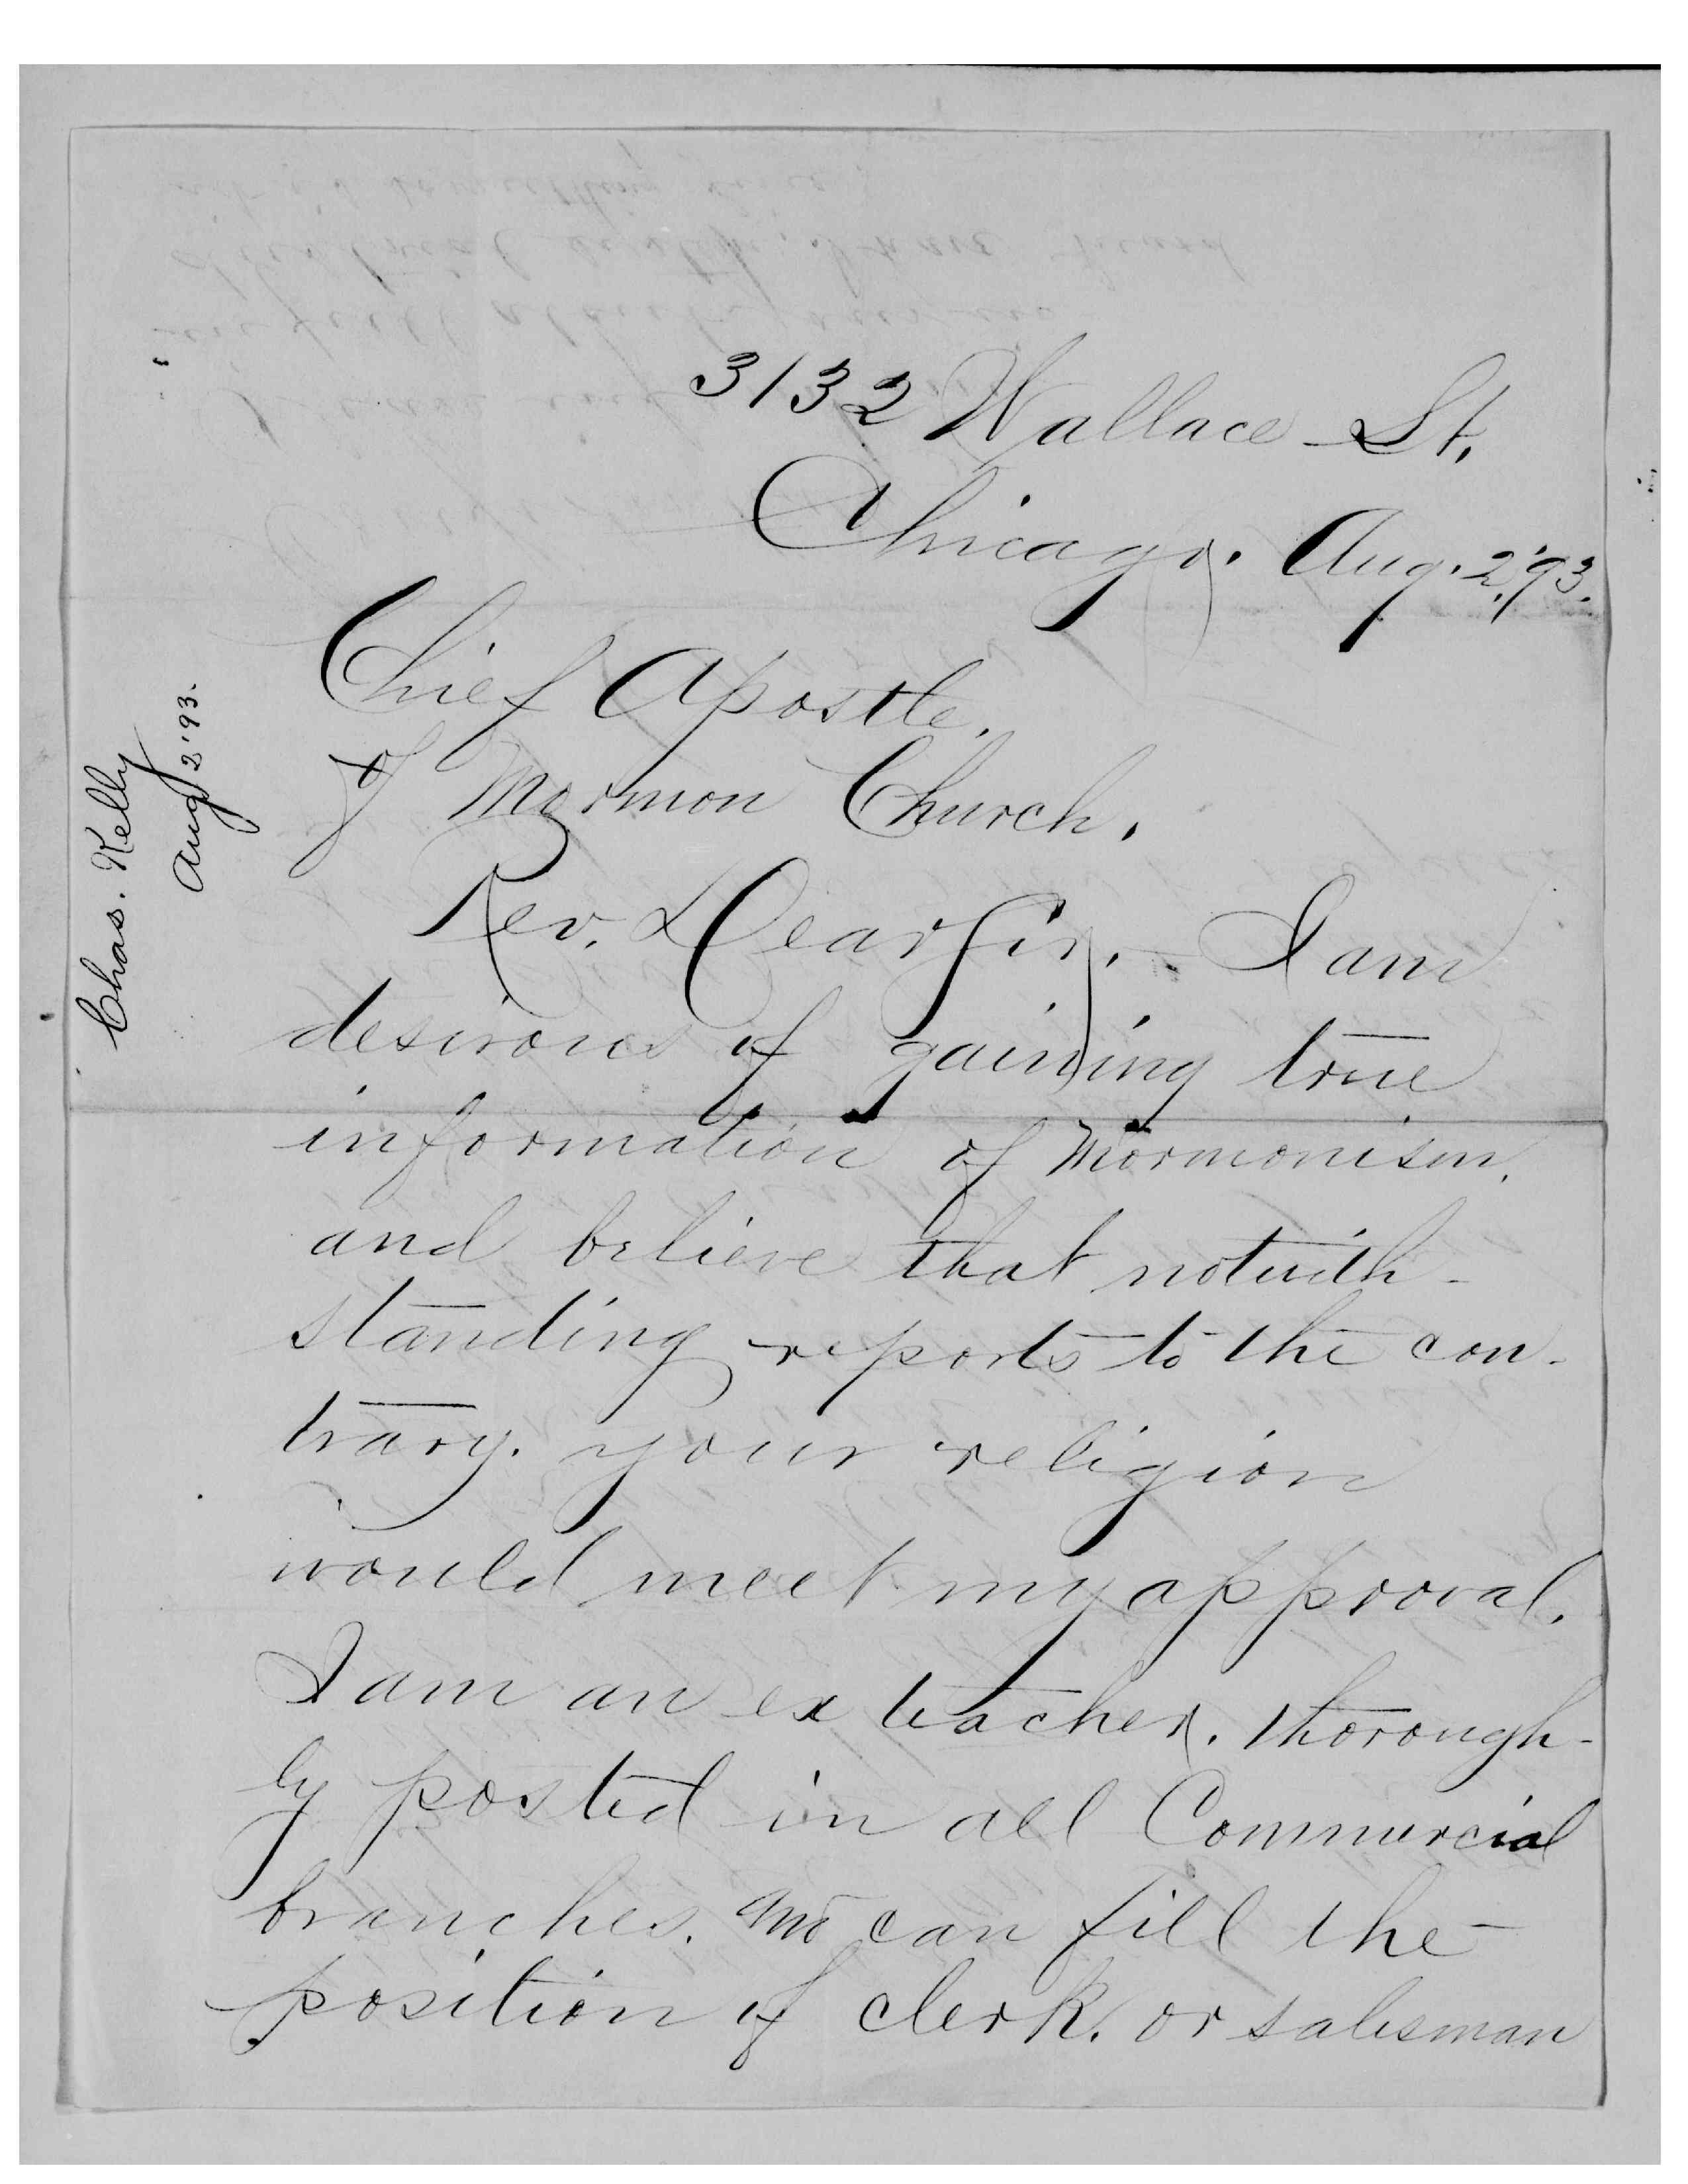 3132 Wallace St.
Chicago. Aug. 2, '93.
Chief Apostle.
of Mormon Church.
Rev. Dear Sir. - I am
desirous of gaining true
information of Mormonism.
and believe that notwith-
standing reports to the con-
trary. your religion
would meet my approval.
I am an ex teacher. thorough-
ly posted in all Commercial
branches. can fill the
position of clerk. or salesman
Chas. Kelly
Aug 2 '93.